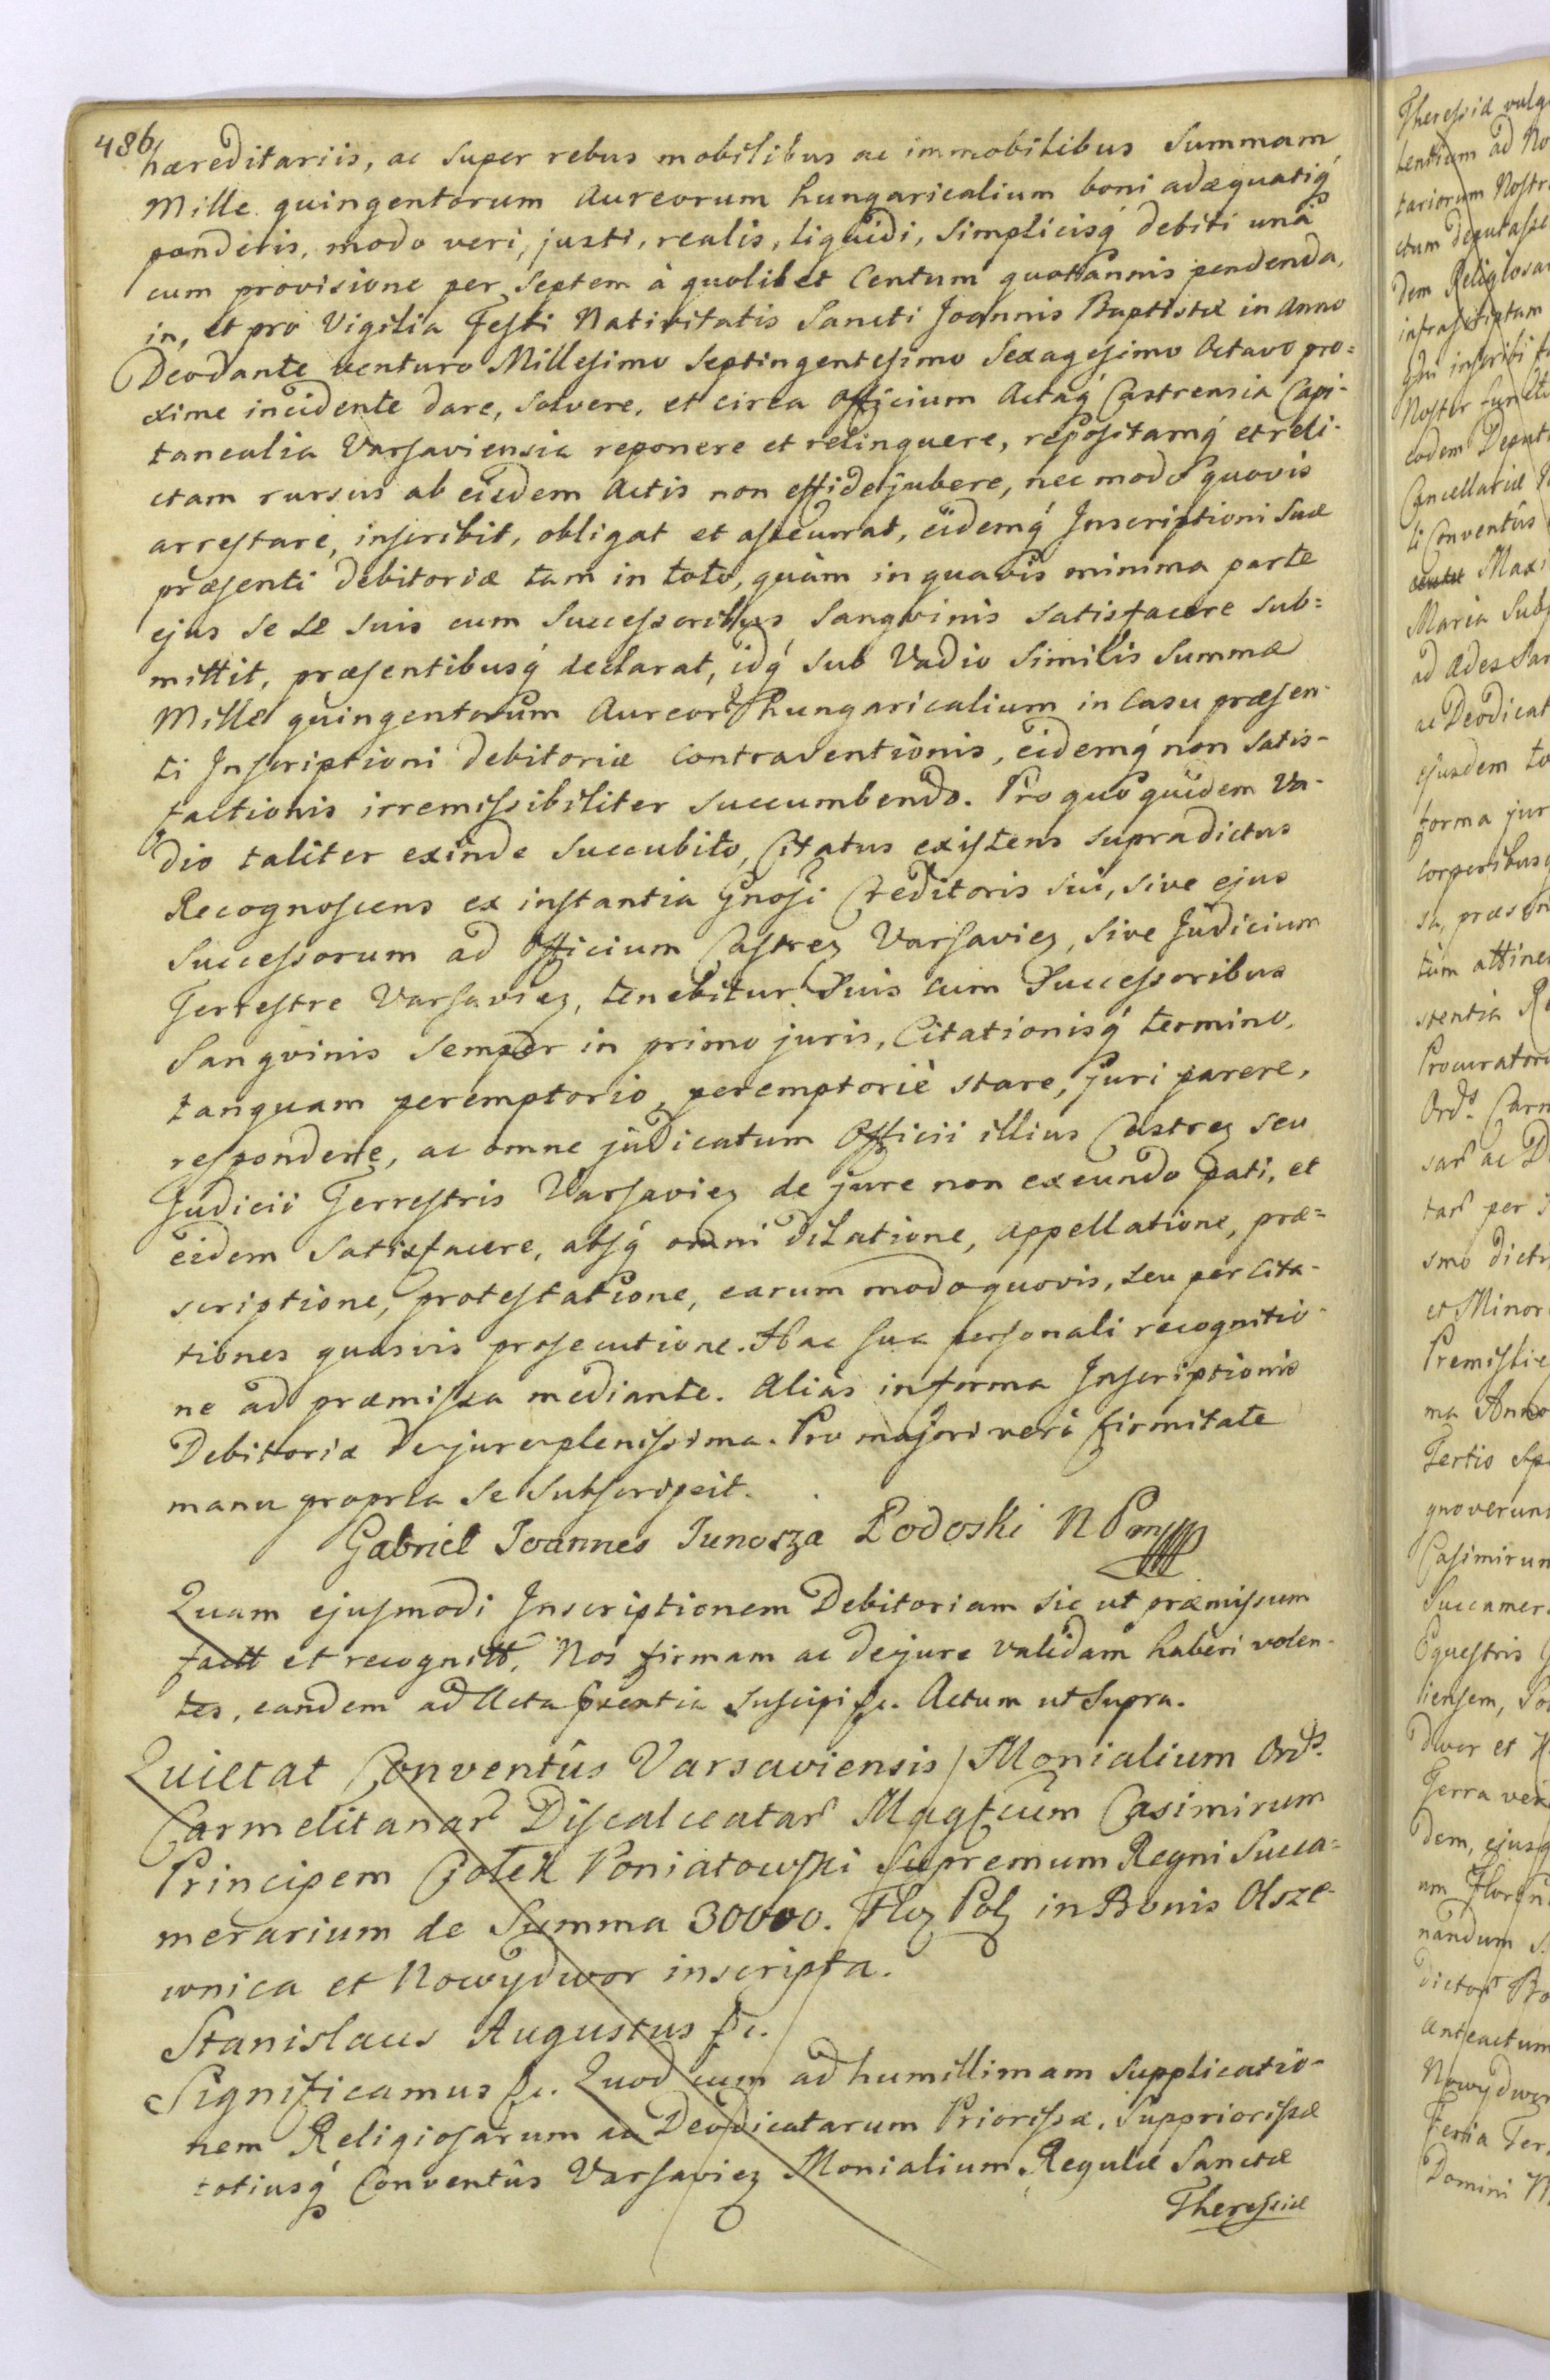 486
hæreditariis, ac super rebus mobilibus ac immobilibus Summam
Mille quingentorum Aureorum hungaricalium boni adæquatiq́
ponderis, modo veri, justi, realis, liquidi, simplicisq́ debiti unà
cum provisione per Septem à quolibet Centum quottannis pendenda,
in, et pro Vigilia Festi Nativitatis Sancti Joannis Baptistæ in Anno
Deodante venturo Millesimo Septingentesimo Sexagesimo Octavo pro=
xime incidente dare, solvere, et circa Officium Actaq́ Castrensia Capi-
tanealia Varsaviensia reponere et relinquere, repositamq́ et reli-
ctam rursus ab eisdem Actis non effidejubere, nec modo quovis
arrestare, inscribit, obligat et assecurat, eidemq́ Inscriptioni suæ
præsenti debitoriæ tam in toto, quàm in quavis minima parte
ejus se se suis cum Successoribus Sangvinis satisfacere sub=
mittit, præsentibusq́ declarat, idq́ sub Vadio similis Summæ
Mille quingentorum Aureorͫ hungaricalium in Casu præsen-
ti Inscriptioni debitoriæ contraventionis, eidemq́ non satis-
factionis irremissibiliter succumbendo. Pro quo quidem Va-
dio taliter exinde succubito, Citatus existens supradictus
Recognoscens ex instantia Gnosi Creditoris sui, sive ejus
Successorum ad Officium Castreȝ Varsavieȝ, sive Judicium
Terrestre Varsavieȝ, tenebitur suis cum Successoribus
Sangvinis semper in primo juris, Citationisq́ termino,
tanquam peremptorio, peremptoriè stare, juri parere,
respondere, ac omne judicatum Officii illius Castreȝ seu
Judicii Terrestris Varsavieȝ de jure non exeundo pati, et
eidem satisfacere, absq́ omni dilatione, appellatione, præ=
scriptione, protestatione, earum modo quovis, seu per cita-
tiones quasvis prosecutione. Hac sua personali recognitio-
ne ad præmissa mediante. Aliàs in forma Inscriptionis
Debitoriæ de jure plenissima. Pro majori verò firmitate
manu propria se subscripsit.
Gabriel Joannes Junosza Podoski N P m
Quam ejusmodi Inscriptionem Debitoriam sic ut præmissum
factt et recognitt, Nos firmam ac de jure validam haberi volen-
tes, eandem ad Acta pñentia suscipi &c. Actum ut Supra.
Quietat Conventûs Varsaviensis Monialium Ordͥˢ.
Carmelitanarͫ Discalceatarͫ Magfcum Casimirum
Principem Ciołek Poniatowski Supremum Regni Succa=
merarium de Summa 30000. Floȝ Polȝ in Bonis Olsze-
wnica et Nowydwor inscripta.
Stanislaus Augustus &c.
Significamus &c. Quod cum ad humillimam supplicatio-
nem Religiosarum ac Deodicatarum Priorissæ, Suppriorissæ
totiusq́ Conventûs Varsavieȝ Monialium Regulæ Sanctæ
Theressiæ
Theressiæ vulg
tentium ad No
tariorum Nostr
ctum deputasse
dem Religiosar
infrascriptam
qui inscribi
Noster
eodem Deput
Cancellariæ
ti Conventûs
Maxi
Maria Sub
ad Ædes Sa
ac Deodicat
ejusdem to
forma jur
corporibus
sa, præsen
tùm attine
stentia R
Procuratori
Ordͥˢ. Carm
sarͫ ac D
tarͫ per
smo dict
et Minor
Premislie
ma Anno
Tertio Sp
gnoverunt
Casimirum
Succamer
Equestris
liensem, Po
dwor et
Terra ver
dem, ejusq
um Floren
nandum s
dictorͫ Bo
anteactum
Nowydwor
Feria Ter
Domini M